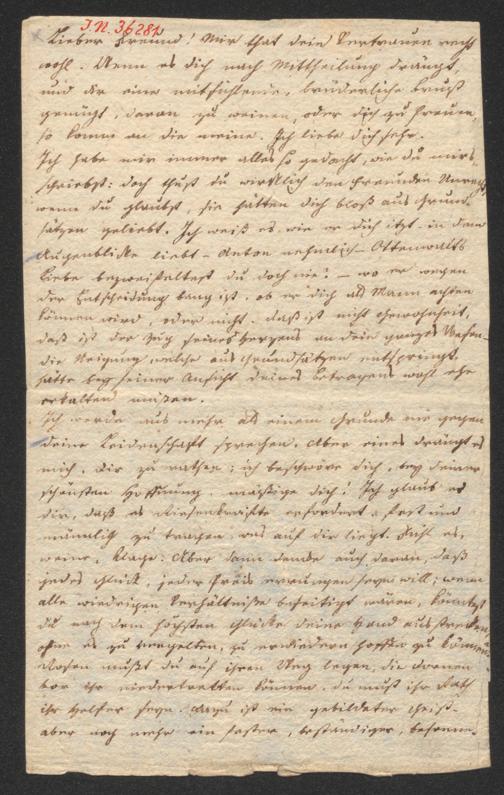 I.N. 36281
Lieber Freund! Mir that dein Vertrauen recht
wohl. Wenn es dich nach Mittheilung drängt,
und dir eine mitfühlende, brüderliche Brust
genügt, daran zu weinen, oder dich zu freuen,
so komm an die meine. Ich liebe dich sehr.
Ich habe mir immer alles so gedacht, wie du mirs
schriebst: doch thust du wirklich den Freunden Unrecht
wenn du glaubst, sie hätten dich bloß aus Grund
sätzen geliebt. Ich weiß es, wie er dich itzt in dem
Augenblicke liebt – Anton nehmlich – Ottenwalts
Liebe bezweifeltest du doch nie? – wo er wegen
der Entscheidung bang ist, ob er dich als Mann achten
können wird, oder nicht. Das ist nicht Gewohnheit,
das ist der Zug seines Herzens an dein ganzes Wesen –
die Neigung, welche aus Grundsätzen entspringt,
hätte bey seiner Ansicht deines Betragens wohl eher
erkalten müssen.
Ich werde aus mehr als einem Grunde nie gegen
deine Leidenschaft sprechen. Aber eines drängt es
mich, dir zu rathen; ich beschwöre dich, bey deiner
schönsten Hoffnung, mäßige dich! Ich glaub es
dir, daß es Riesenkräfte erfordert, fest und
männlich zu tragen, was auf dir liegt. Fühl es,
weine, klage: Aber dann denke auch daran, daß
jedes Glück, jeder Preis errungen seyn will; wenn
alle widrigen Verhältniße beseitigt wären, könntest
du nach dem höchsten Glücke deine Hand ausstrecken,
ohne es zu vergelten, zu erwiedern hoffen zu können.
Rosen mußt du auf ihren Weg legen, die Dornen
vor ihr niedertretten können, du must ihr Rath
ihr Helfer seyn. Dazu ist ein gebildeter Geist –
aber noch mehr ein fester, beständiger, besonne-